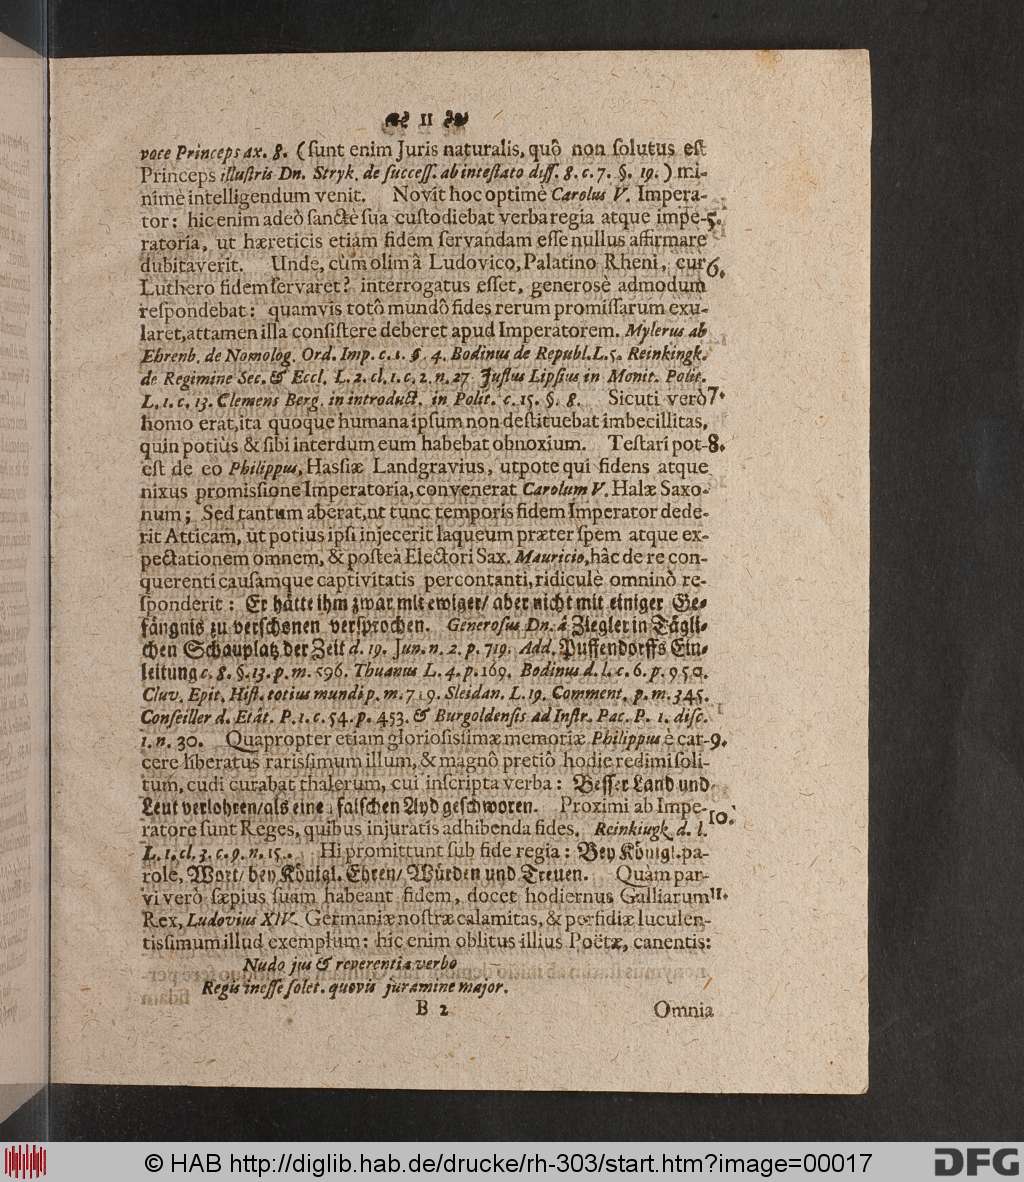 11
voce Princeps ax. 8. (sunt enim Juris naturalis, quô non solutus est
Princeps illustris Dn. Stryk. de success. ab intestato diss. 8. c. 7. §. 19.) mi-
nimè intelligendum venit. Novit hoc optimè Carolus V. Impera-
tor: hic enim adeò sanctè sua custodiebat verba regia atque impe- 5.
ratoria, ut hæreticis etiam fidem servandam esse nullus affirmare
dubitaverit. Unde, cùm olim â Ludovico, Palatino Rheni, cur 6.
Luthero fidem servaret? interrogatus esset, generosè admodum
respondebat: quamvis totô mundô fides rerum promissarum exu-
laret, attamen illa consistere deberet apud Imperatorem. Mylerus ab
Ehrenb. de Nomolog. Ord. Imp. c. 1. §. 4. Bodinus de Republ. L. 5. Reinkingk.
de Regimine Sec. & Eccl. L. 2. cl. 1. c. 2. n. 27. Justus Lipsius in Monit. Polit.
L. 1. c. 13. Clemens Berg. in introduct. in Polit. c. 15. §. 8. Sicuti verò 7.
homo erat, ita quoque humana ipsum non destituebat imbecillitas,
quin potiùs & sibi interdum eum habebat obnoxium. Testari pot- 8.
est de eo Philippus, Hassiæ Landgravius, utpote qui fidens atque
nixus promissione Imperatoria, convenerat Carolum V. Halæ Saxo-
num; Sed tantum aberat, ut tunc temporis fidem Imperator dede-
rit Atticam, ut potius ipsi injecerit laqueum præter spem atque ex-
pectationem omnem, & posteà Electori Sax. Mauricio, hâc de re con-
querenti causamque captivitatis percontanti, ridiculè omninò re-
sponderit: Er hätte ihm zwar mit ewiger/ aber nicht mit einiger Ge-
fängnis zu verschonen versprochen. Generosus Dn. â Ziegler in Tägli-
chen Schauplatz der Zeit d. 19. Jun. n. 2. p. 719. Add. Puffendorffs Ein-
leitung c. 8. §. 13. p. m. 596. Thuanus L. 4. p. 169. Bodinus d. l. c. 6. p. 950.
Cluv. Epit. Hist. totius mundi p. m. 719. Sleidan. L. 19. Comment. p. m. 345.
Conseiller d. Etât. P. 1. c. 54. p. 453. & Burgoldensis ad Instr. Pac. P. 1. disc.
1. n. 30. Quapropter etiam gloriosissimæ memoriæ Philippus è car- 9.
cere liberatus rarissimum illum, & magnô pretiô hodie redimi soli-
tum, cudi curabat thalerum, cui inscripta verba: Besser Land und
Leut verlohren/ als eine falschen Ayd geschworen. Proximi ab Impe- 10.
ratore sunt Reges, quibus injuratis adhibenda fides. Reinkingk d. l.
L. 1. cl. 3. c. 9. n. 15. Hi promittunt sub fide regia: Bey Königl. pa-
role, Wort/ bey Königl. Ehren/ Würden und Treuen. Quam par-
vi verò sæpius suam habeant fidem, docet hodiernus Galliarum 11.
Rex, Ludovius XIV. Germaniæ nostræ calamitas, & perfidiæ luculen-
tissimum illud exemplum: hic enim oblitus illius Poëtæ, canentis:
Nudo jus & reverentia verbo
Regis inesse solet. quovis juramine major.
B 2 Omnia
© HAB http://diglib.hab.de/drucke/rh-303/start.htm?image=00017
DFG